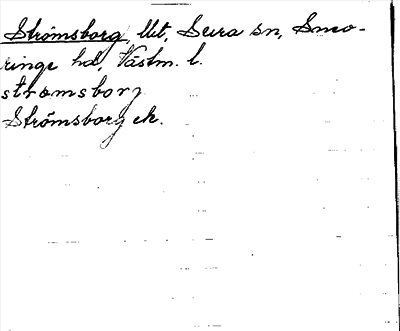 Strömsborg, llt, Svra sn, Sneo-
ringe hd, Västm. l.
strömsborj
Strömsborg ek.